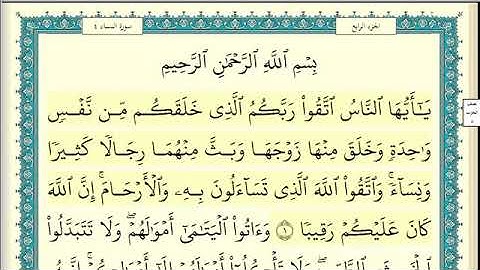 الجزء الرابع
سورة النساء ٤
بِسْمِ ٱللَّهِ ٱلرَّحْمَٰنِ ٱلرَّحِيمِ
يَٰٓأَيُّهَا ٱلنَّاسُ ٱتَّقُوا۟ رَبَّكُمُ ٱلَّذِى خَلَقَكُم مِّن نَّفْسٍ
وَٰحِدَةٍ وَخَلَقَ مِنْهَا زَوْجَهَا وَبَثَّ مِنْهُمَا رِجَالًا كَثِيرًا
وَنِسَآءً ۚ وَٱتَّقُوا۟ ٱللَّهَ ٱلَّذِى تَسَآءَلُونَ بِهِۦ وَٱلْأَرْحَامَ ۚ إِنَّ ٱللَّهَ
كَانَ عَلَيْكُمْ رَقِيبًا ١ وَءَاتُوا۟ ٱلْيَتَٰمَىٰٓ أَمْوَٰلَهُمْ ۖ وَلَا تَتَبَدَّلُوا۟